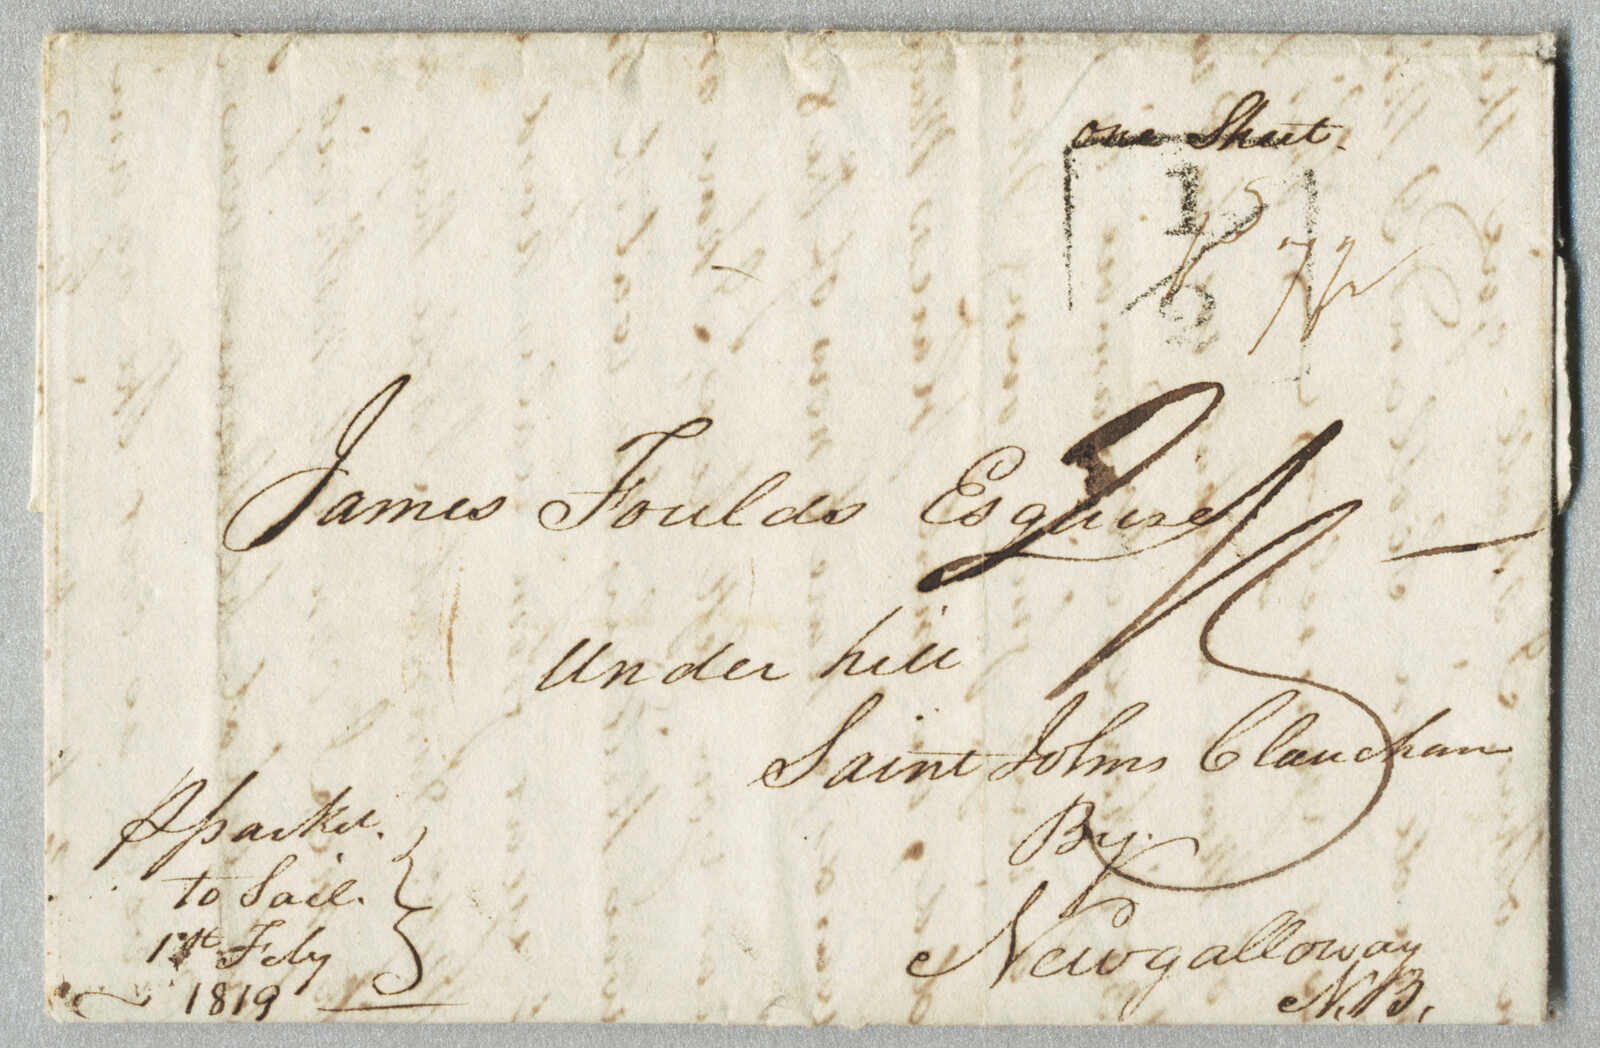 one Sheet.
1/2
James Foulds Esquire
Under hill
Saint Johns Clauchan
By.
Newgalloway
N.B.
P packet.
to Sail.
1st Feby
1819